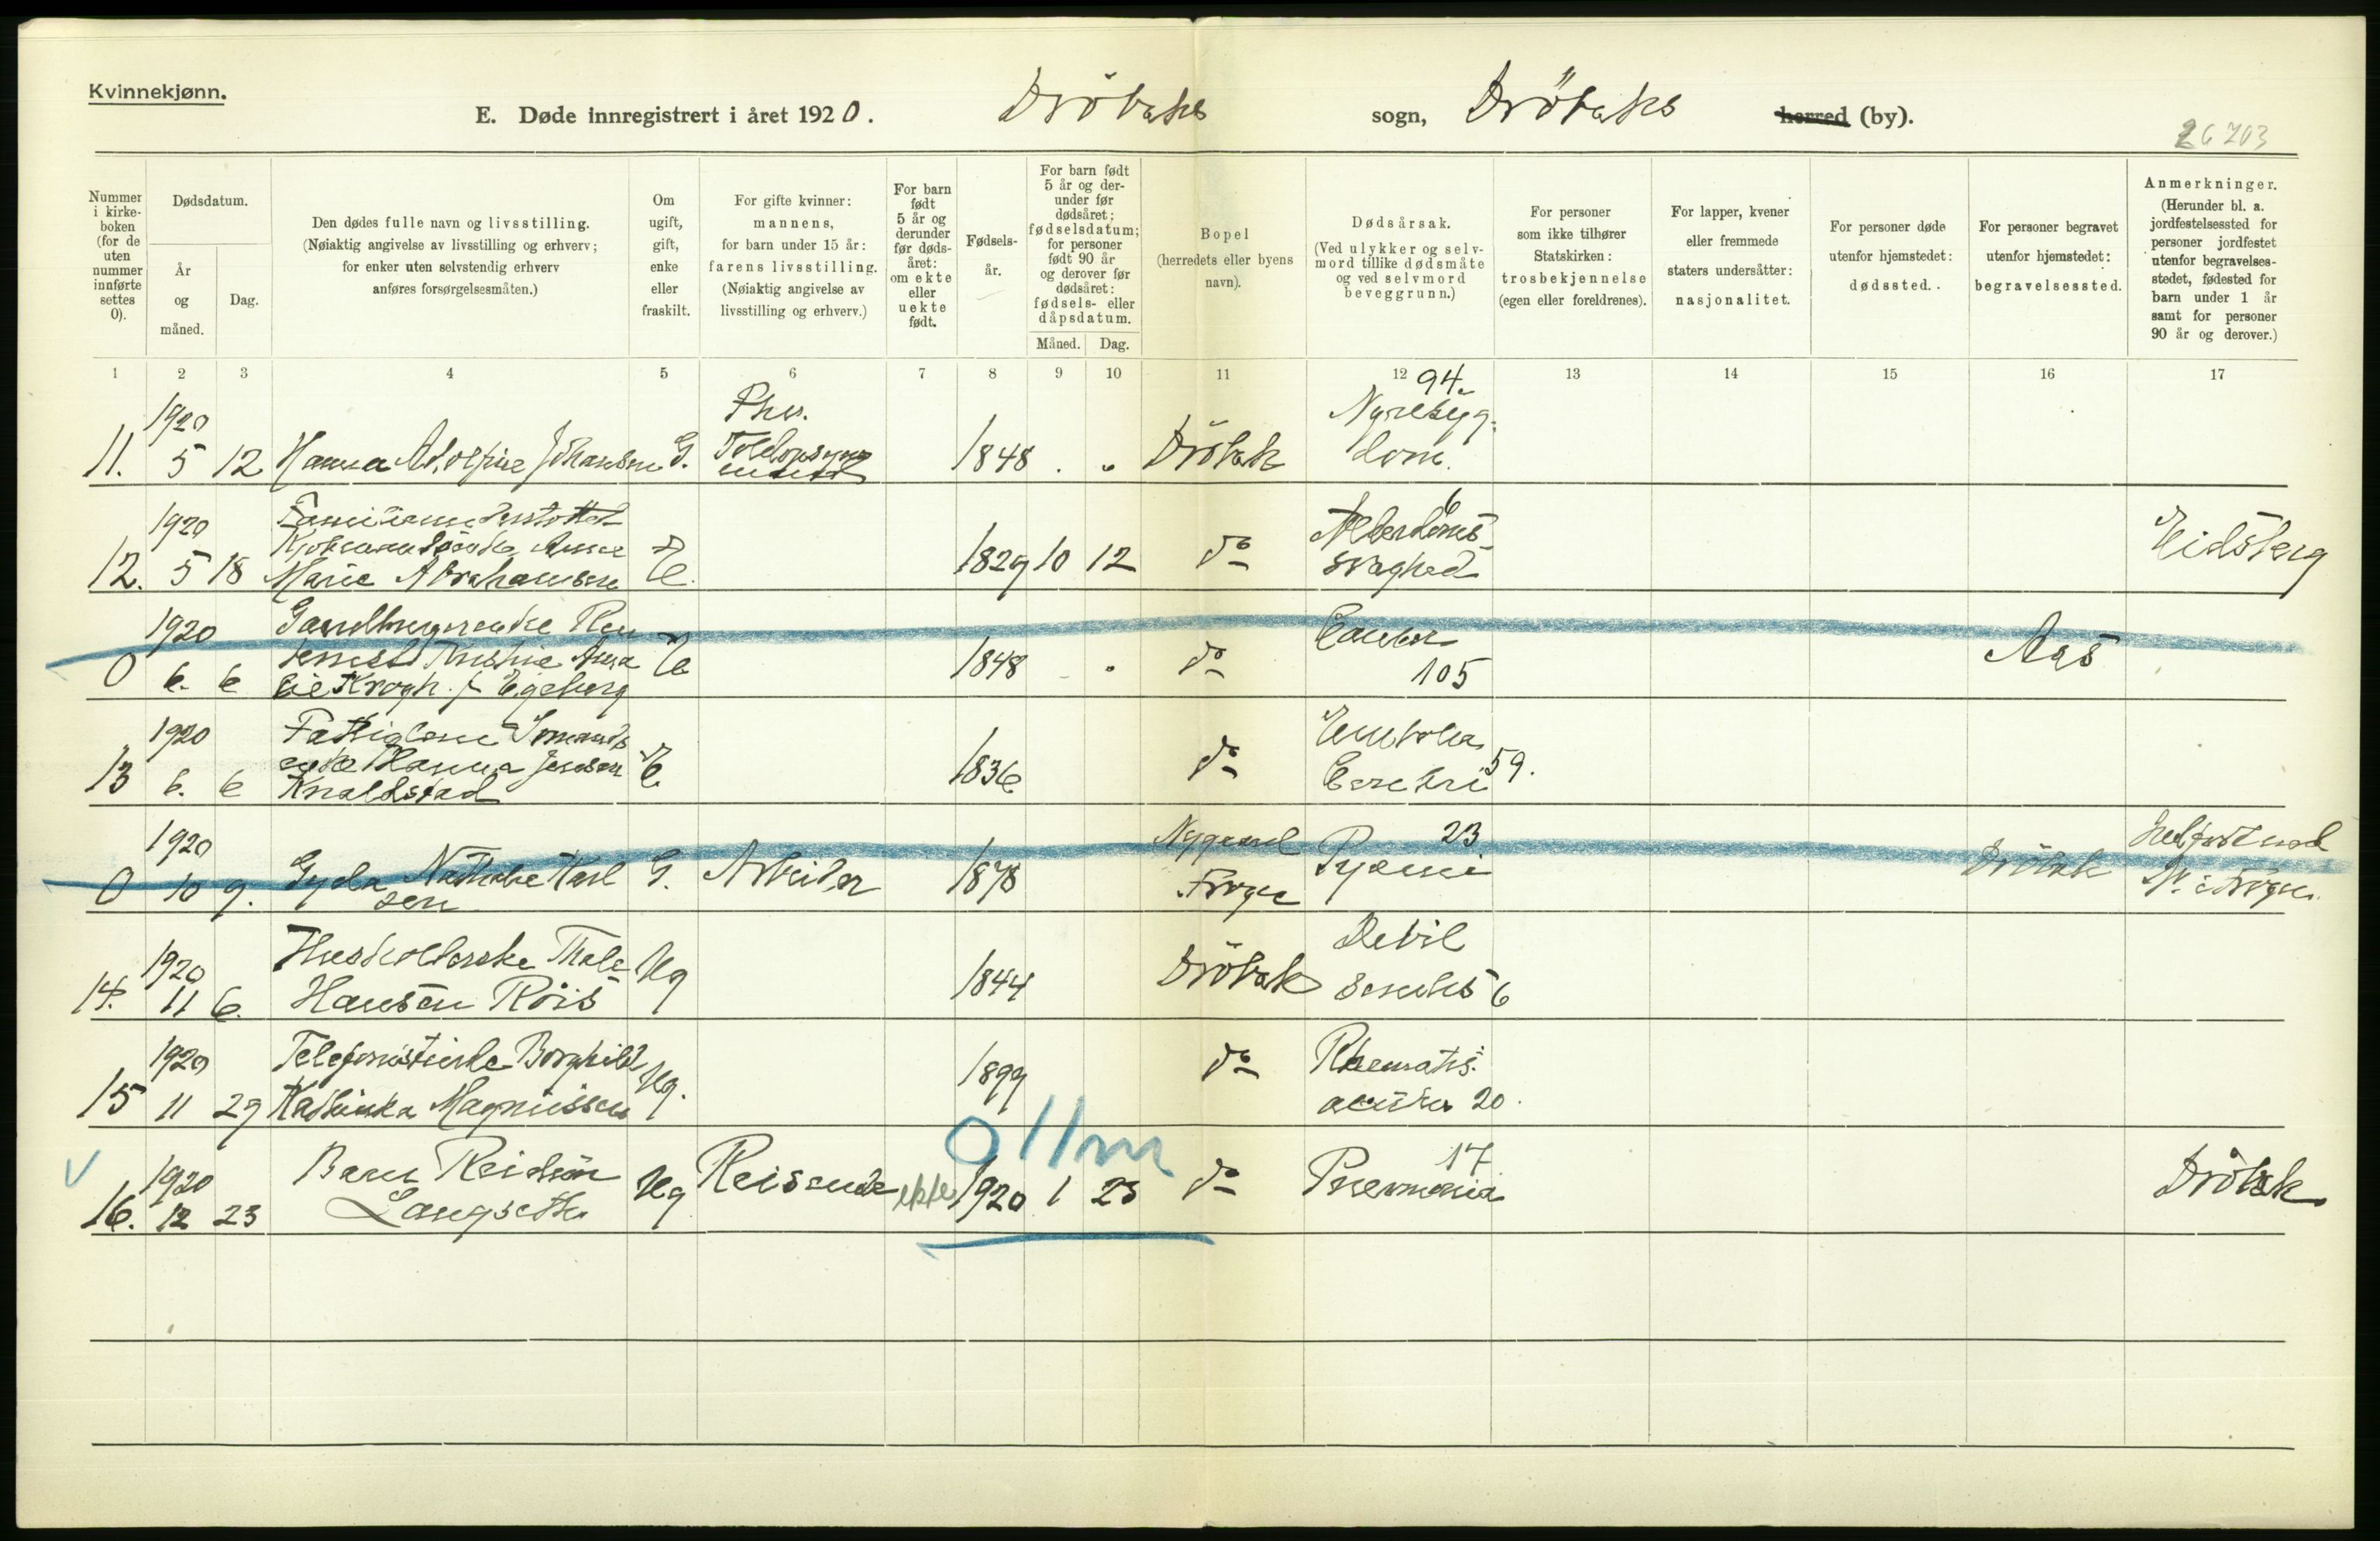 Kvinnekjønn.
E. Døde innregistrert i året 1920. Dröbaks sogn, Dröbaks herred (by).
26703
Nummer i kirke-boken (for de uten nummer innførte settes 0).
Dødsdatum.
År og måned.
Dag.
Den dødes fulle navn og livsstilling.
(Nøiaktig angivelse av livsstilling og erhverv;
for enker uten selvstendig erhverv
anføres forsørgelsesmåten.)
Om ugift, gift, enke eller fraskilt.
For gifte kvinner:
mannens,
for barn under 15 år:
farens livsstilling.
(Nøiaktig angivelse av
livsstilling og erhverv.)
For barn født 5 år og derunder før døds-året: om ekte eller uekte født.
Fødsels-år.
For barn født 5 år og der-under før dødsåret: fødselsdatum; for personer født 90 år og derover før dødsåret: fødsels- eller dåpsdatum.
Måned. Dag.
Bopel
(herredets eller byens
navn).
Dødsårsak.
(Ved ulykker og selv-
mord tillike dødsmåte
og ved selvmord
beveggrunn.)
For personer
som ikke tilhører
Statskirken:
trosbekjennelse
(egen eller foreldrenes).
For lapper, kvener
eller fremmede
staters undersåtter:
nasjonalitet.
For personer døde
utenfor hjemstedet:
dødssted.
For personer begravet
utenfor hjemstedet:
begravelsessted.
Anmerkninger.
(Herunder bl. a.
jordfestelsessted for
personer jordfestet
utenfor begravelses-
stedet, fødested for
barn under 1 år
samt for personer
90 år og derover.)
1 2 3 4 5 6 7 8 9 10 11 12 13 14 15 16 17
1920 94
11. 5 12 Hanna Adolfine Johansen G. 1848 Dröbak Nyresyg-
dom.
1920 6
12. 5 18 Marie Abrahamsen E. 1829 10 12 do Alderdoms-
svaghed Eidsberg
1920
0 6. 6 Krogh f. Egeberg E 1848 do Cancer
105 Aas
1920
13 6. 6 Hanna Jensen
Knaldstad E. 1836 do Embolia
Cerebri 59.
1920 23
0 10 9. Gyda Nathalie Karl
sen G. Arbeider 1878 Nygaard
Frogn Pyæmi Dröbak N. i Frogn.
1920
14. 11 6. Husholderske Thale
Hansen Röis Ug 1844 Dröbak Debil
senilis 6
1920
15 11 29 Telefonistinde Borghild
Kathinka Magnussen Ug. 1899 do Rheumatis.
acutus 20.
0 11 m
1920 17
16. 12 23 Barn Reidun
Langseth Ug Reisende ekte 1920 1 23 do Pneumonia Dröbak